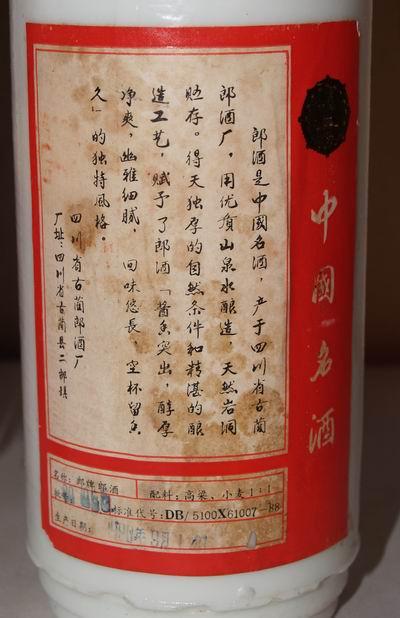 郎酒是中國名酒，产于四川省古蔺
郎酒厂，用优质山泉水酿造，天然岩洞
贮存。得天独厚的自然条件和精湛的酿
造工艺，赋予了郎酒「酱香突出，醇厚
净爽，幽雅细腻，回味悠長，空杯留香
久」的独特風格。
四川省古蔺郎酒厂
厂址：四川省古蔺县二郎鎮
中國名酒
名称：郎牌郎酒
配料：高粱、小麦1：1
批号：
标准代号：DB/5100X61007-88
生产日期：